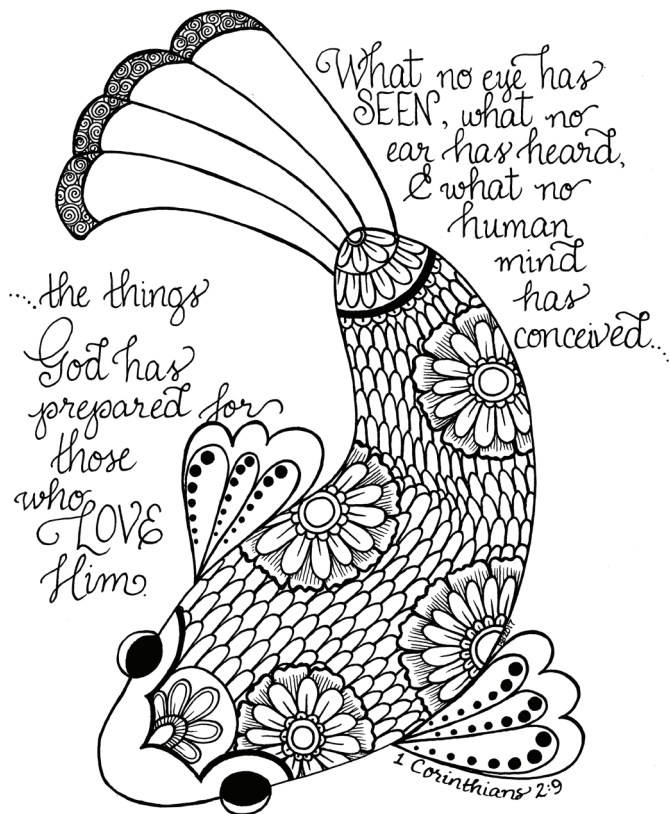 What no eye has
SEEN, what no
ear has heard,
& what no
human
mind
has
conceived...
....the things
God has
prepared for
those
who
LOVE
Him.
1 Corinthians 2:9